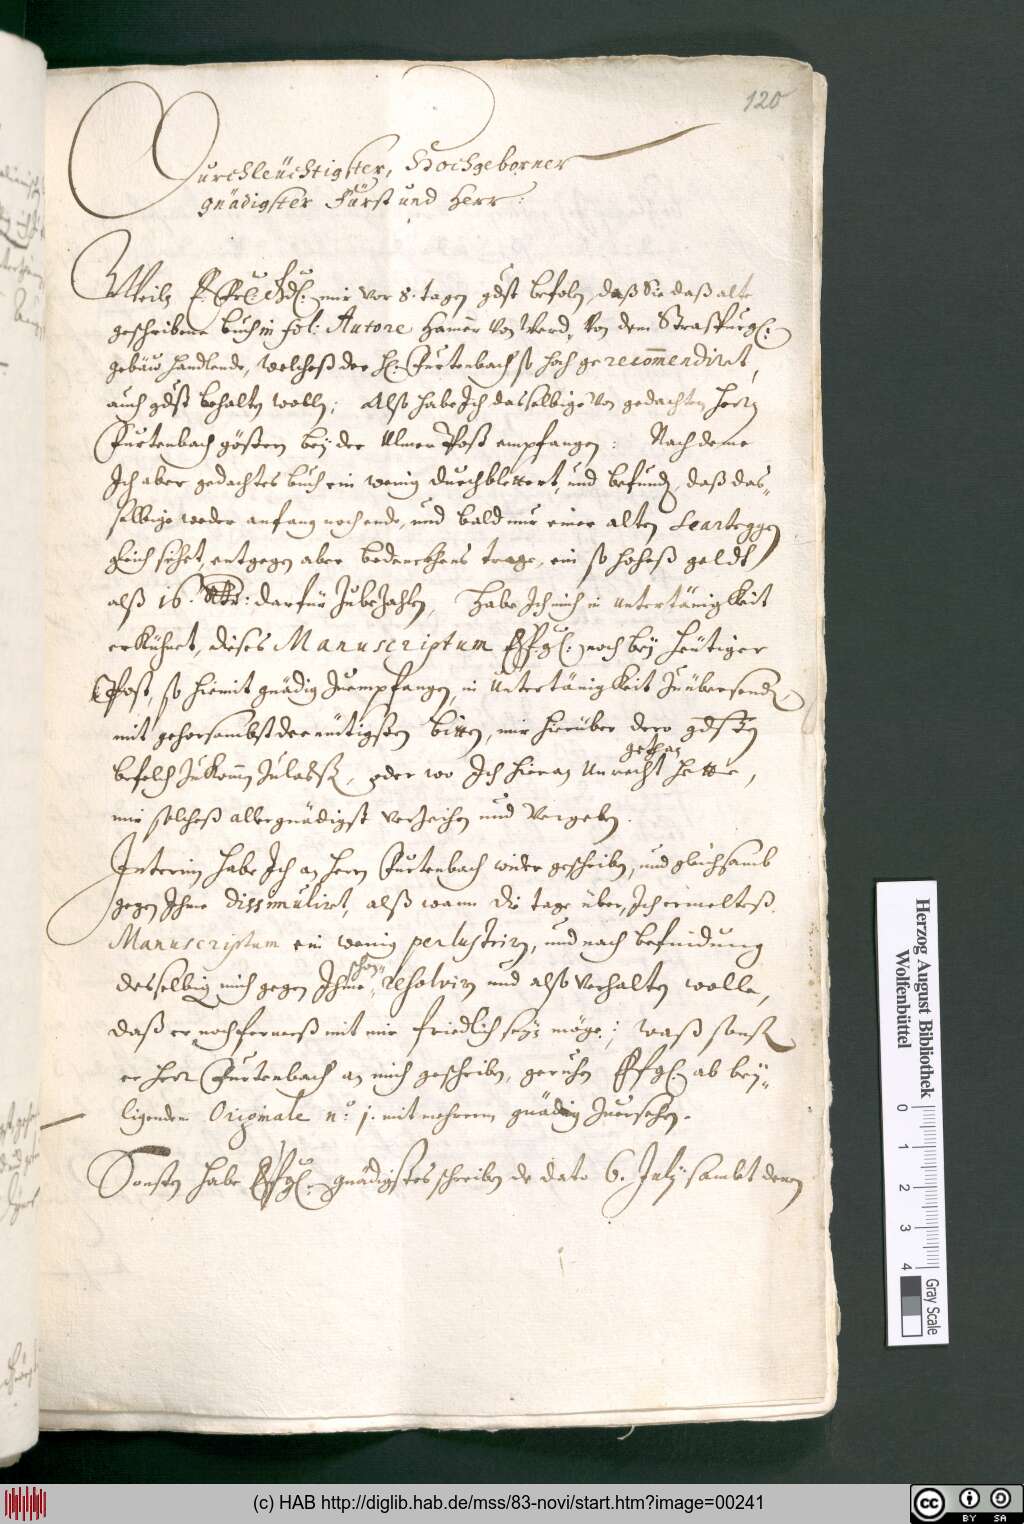 120
Durchleüchtigster, Hochgeborner
gnädigster Fürst und Herr:
Weiln E. Frl. Gd: mir vor 8. tagen gdst befoln, daß Sie daß alte
geschribene buch in fol: Autore Hanns von Werd, von dem Straspurg:
gebäw handlende, welcheß der H: Furtenbach so hoch gerecommendiret,
auch gdst behalten wolln; Alß habe Ich dasselbige von gedachten Herrn
Furtenbach gösten bey der Ulmer Post empfangen: Nach deme
Ich aber gedachtes buch ein wenig durchblettert, und befunden, daß das-
selbige weder anfang noch ende, und bald nur einer alten Scarteggen
gleich sihet, entgegen aber bedenckhens trage, ein so hoheß geldt
alß 16. Rtr: darfür Zubezahlen, Habe Ich mich in Untertänigkeit
erkühnet, dieses Manuscriptum EFg: noch bey heütiger
Post, so hiemit gnädig Zuempfangen, in Untertänigkeit Zuübersenden,
mit gehorsambst demütigsten bitten, mir hierüber dero gdsten
befelch Zukomen Zulassen, oder wo Ich hieran Unrecht gethan hette,
mir solcheß allergnädigst verzeihen und vergeben.
Interim habe Ich an Herrn Furtenbach wider geschriben, und gleichsamb
gegen Ihme dissimuliret, alß wann Die tage über, Ich ermelteß
Manuscriptum ein wenig perlustrirn, und nach befindung
desselbig mich gegen Ihme schon resolvirn und also verhalten wolle,
daß er noch fernerß mit mir friedlich seyn möge; waß sonsten
er Herr Furtenbach an mich geschriben, geruhen EFg: ab bey-
ligendem Originale n.o 1. mit mehrerm gnädig Zuersehen.
Sonsten habe EFg: gnädigstes schreiben de dato 6. July sambt denen
Herzog August Bibliothek
Wolfenbüttel
0 1 2 3 4
Gray Scale
(c) HAB http://diglib.hab.de/mss/83-novi/start.htm?image=00241
CC BY SA